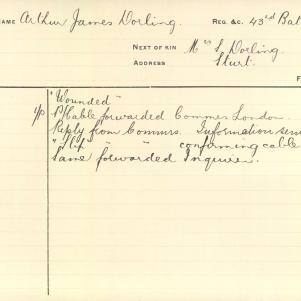 NAME Arthur James Dorling. REG. &C. 43rd Bat
NEXT OF KIN Mrs S Dorling.
ADDRESS Sturt.
"Wounded"
Cable forwarded Commrs London.
Reply from Commrs. Information
"Slip" " " confirming cable
Same forwarded Inquirer.